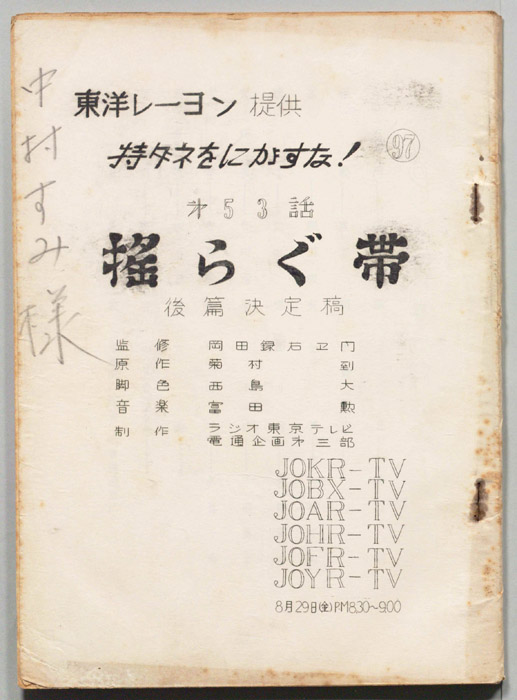 東洋レーヨン 提供
特ダネをにがすな! 97
才53話
揺らぐ帯
後篇決定稿
監修 岡田録右ヱ門
原作 菊村到
脚色 西島大
音楽 富田勲
制作 ラジオ東京テレビ
電通企画才三部
JOKR-TV
JOBX-TV
JOAR-TV
JOHR-TV
JOFR-TV
JOYR-TV
8月29日(金)PM8.30~9.00
中村すみ様